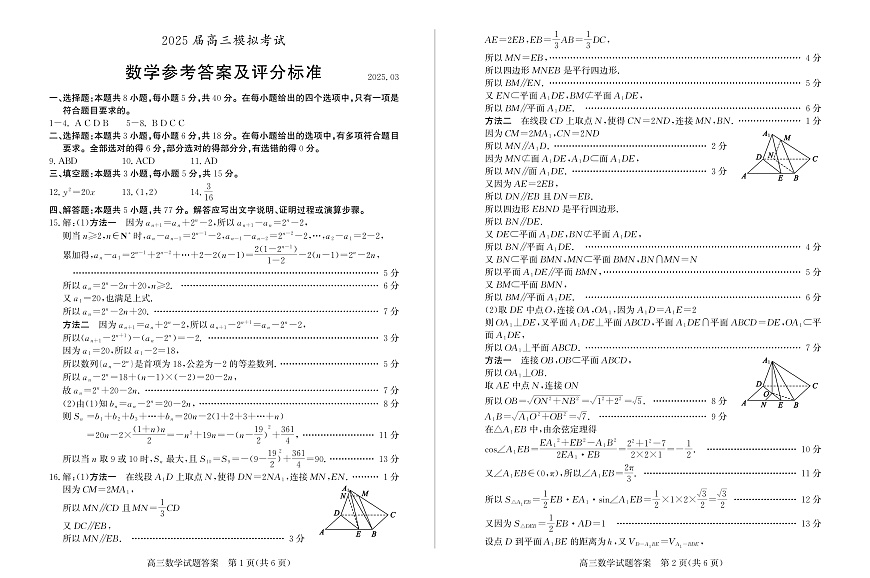 2025 届高三模拟考试
数学参考答案及评分标准 2025.03
一、选择题:本题共 8 小题,每小题 5 分,共 40 分。在每小题给出的四个选项中,只有一项是
符合题目要求的。
1-4. A C D B 5-8. B D C C
二、选择题:本题共 3 小题,每小题 6 分,共 18 分。在每小题给出的选项中,有多项符合题目
要求。全部选对的得 6 分,部分选对的得部分分,有选错的得 0 分。
9. ABD 10. ACD 11. AD
三、填空题:本题共 3 小题,每小题 5 分,共 15 分。
12. y²=20x 13. (1,2) 14. 3/16
四、解答题:本题共 5 小题,共 77 分。解答应写出文字说明、证明过程或演算步骤。
15. 解:(1)方法一 因为 aₙ₊₁=aₙ+2ⁿ-2,所以 aₙ₊₁-aₙ=2ⁿ-2,
则当 n≥2,n∈N* 时,aₙ-aₙ₋₁=2ⁿ⁻¹-2,aₙ₋₁-aₙ₋₂=2ⁿ⁻²-2,…,a₂-a₁=2-2,
累加得,aₙ-a₁=2ⁿ⁻¹+2ⁿ⁻²+…+2-2(n-1)=2(1-2ⁿ⁻¹)/(1-2)-2(n-1)=2ⁿ-2n,
…… 5 分
所以 aₙ=2ⁿ-2n+20,n≥2. …… 6 分
又 a₁=20,也满足上式.
所以 aₙ=2ⁿ-2n+20. …… 7 分
方法二 因为 aₙ₊₁=aₙ+2ⁿ-2,所以 aₙ₊₁-2ⁿ⁺¹=aₙ-2ⁿ-2,
所以(aₙ₊₁-2ⁿ⁺¹)-(aₙ-2ⁿ)=-2. …… 3 分
因为 a₁=20,所以 a₁-2=18,
所以数列{aₙ-2ⁿ}是首项为 18,公差为-2 的等差数列. …… 5 分
所以 aₙ-2ⁿ=18+(n-1)×(-2)=20-2n,
故 aₙ=2ⁿ+20-2n. …… 7 分
(2)由(1)知 bₙ=aₙ-2ⁿ=20-2n, …… 8 分
则 Sₙ=b₁+b₂+b₃+…+bₙ=20n-2(1+2+3+…+n)
=20n-2×(1+n)n/2=-n²+19n=-(n-19/2)²+361/4, …… 11 分
所以当 n 取 9 或 10 时,Sₙ 最大,且 S₁₀=S₉=-(9-19/2)²+361/4=90. …… 13 分
16. 解:(1)方法一 在线段 A₁D 上取点 N,使得 DN=2NA₁,连接 MN,EN. …… 1 分
因为 CM=2MA₁,
所以 MN∥CD 且 MN=1/3CD
又 DC∥EB,
所以 MN∥EB. …… 3 分
A₁ N M D C A E B
高三数学试题答案 第 1 页(共 6 页)
AE=2EB,EB=1/3AB=1/3DC,
所以 MN=EB, …… 4 分
所以四边形 MNEB 是平行四边形.
所以 BM∥EN. …… 5 分
又 EN⊂平面 A₁DE,BM⊄平面 A₁DE,
所以 BM∥平面 A₁DE. …… 6 分
方法二 在线段 CD 上取点 N,使得 CN=2ND,连接 MN,BN. …… 1 分
因为 CM=2MA₁,CN=2ND
所以 MN∥A₁D. …… 2 分
因为 MN⊄面 A₁DE,A₁D⊂面 A₁DE,
所以 MN∥面 A₁DE. …… 3 分
又因为 AE=2EB,
所以 DN∥EB 且 DN=EB.
所以四边形 EBND 是平行四边形.
所以 BN∥DE.
又 DE⊂平面 A₁DE,BN⊄平面 A₁DE,
所以 BN∥平面 A₁DE. …… 4 分
又 BN⊂平面 BMN,MN⊂平面 BMN,BN∩MN=N
所以平面 A₁DE∥平面 BMN, …… 5 分
又 BM⊂平面 BMN,
所以 BM∥平面 A₁DE. …… 6 分
A₁ M D N C A E B
(2)取 DE 中点 O,连接 OA,OA₁,因为 A₁D=A₁E=2
则 OA₁⊥DE,又平面 A₁DE⊥平面 ABCD,平面 A₁DE∩平面 ABCD=DE,OA₁⊂平
面 A₁DE,
所以 OA₁⊥平面 ABCD. …… 7 分
方法一 连接 OB,OB⊂平面 ABCD,
所以 OA₁⊥OB.
取 AE 中点 N,连接 ON
所以 OB=√(ON²+NB²)=√(1²+2²)=√5. …… 8 分
A₁B=√(A₁O²+OB²)=√7. …… 9 分
A₁ M D O C A N E B
在△A₁EB 中,由余弦定理得
cos∠A₁EB=(EA₁²+EB²-A₁B²)/(2EA₁·EB)=(2²+1²-7)/(2×2×1)=-1/2. …… 10 分
又∠A₁EB∈(0,π),所以∠A₁EB=2π/3. …… 11 分
所以 S△A₁EB=1/2EB·EA₁·sin∠A₁EB=1/2×1×2×√3/2=√3/2 …… 12 分
又因为 S△DEB=1/2EB·AD=1 …… 13 分
设点 D 到平面 A₁BE 的距离为 h,又 V_D-A₁BE=V_A₁-BDE,
高三数学试题答案 第 2 页(共 6 页)